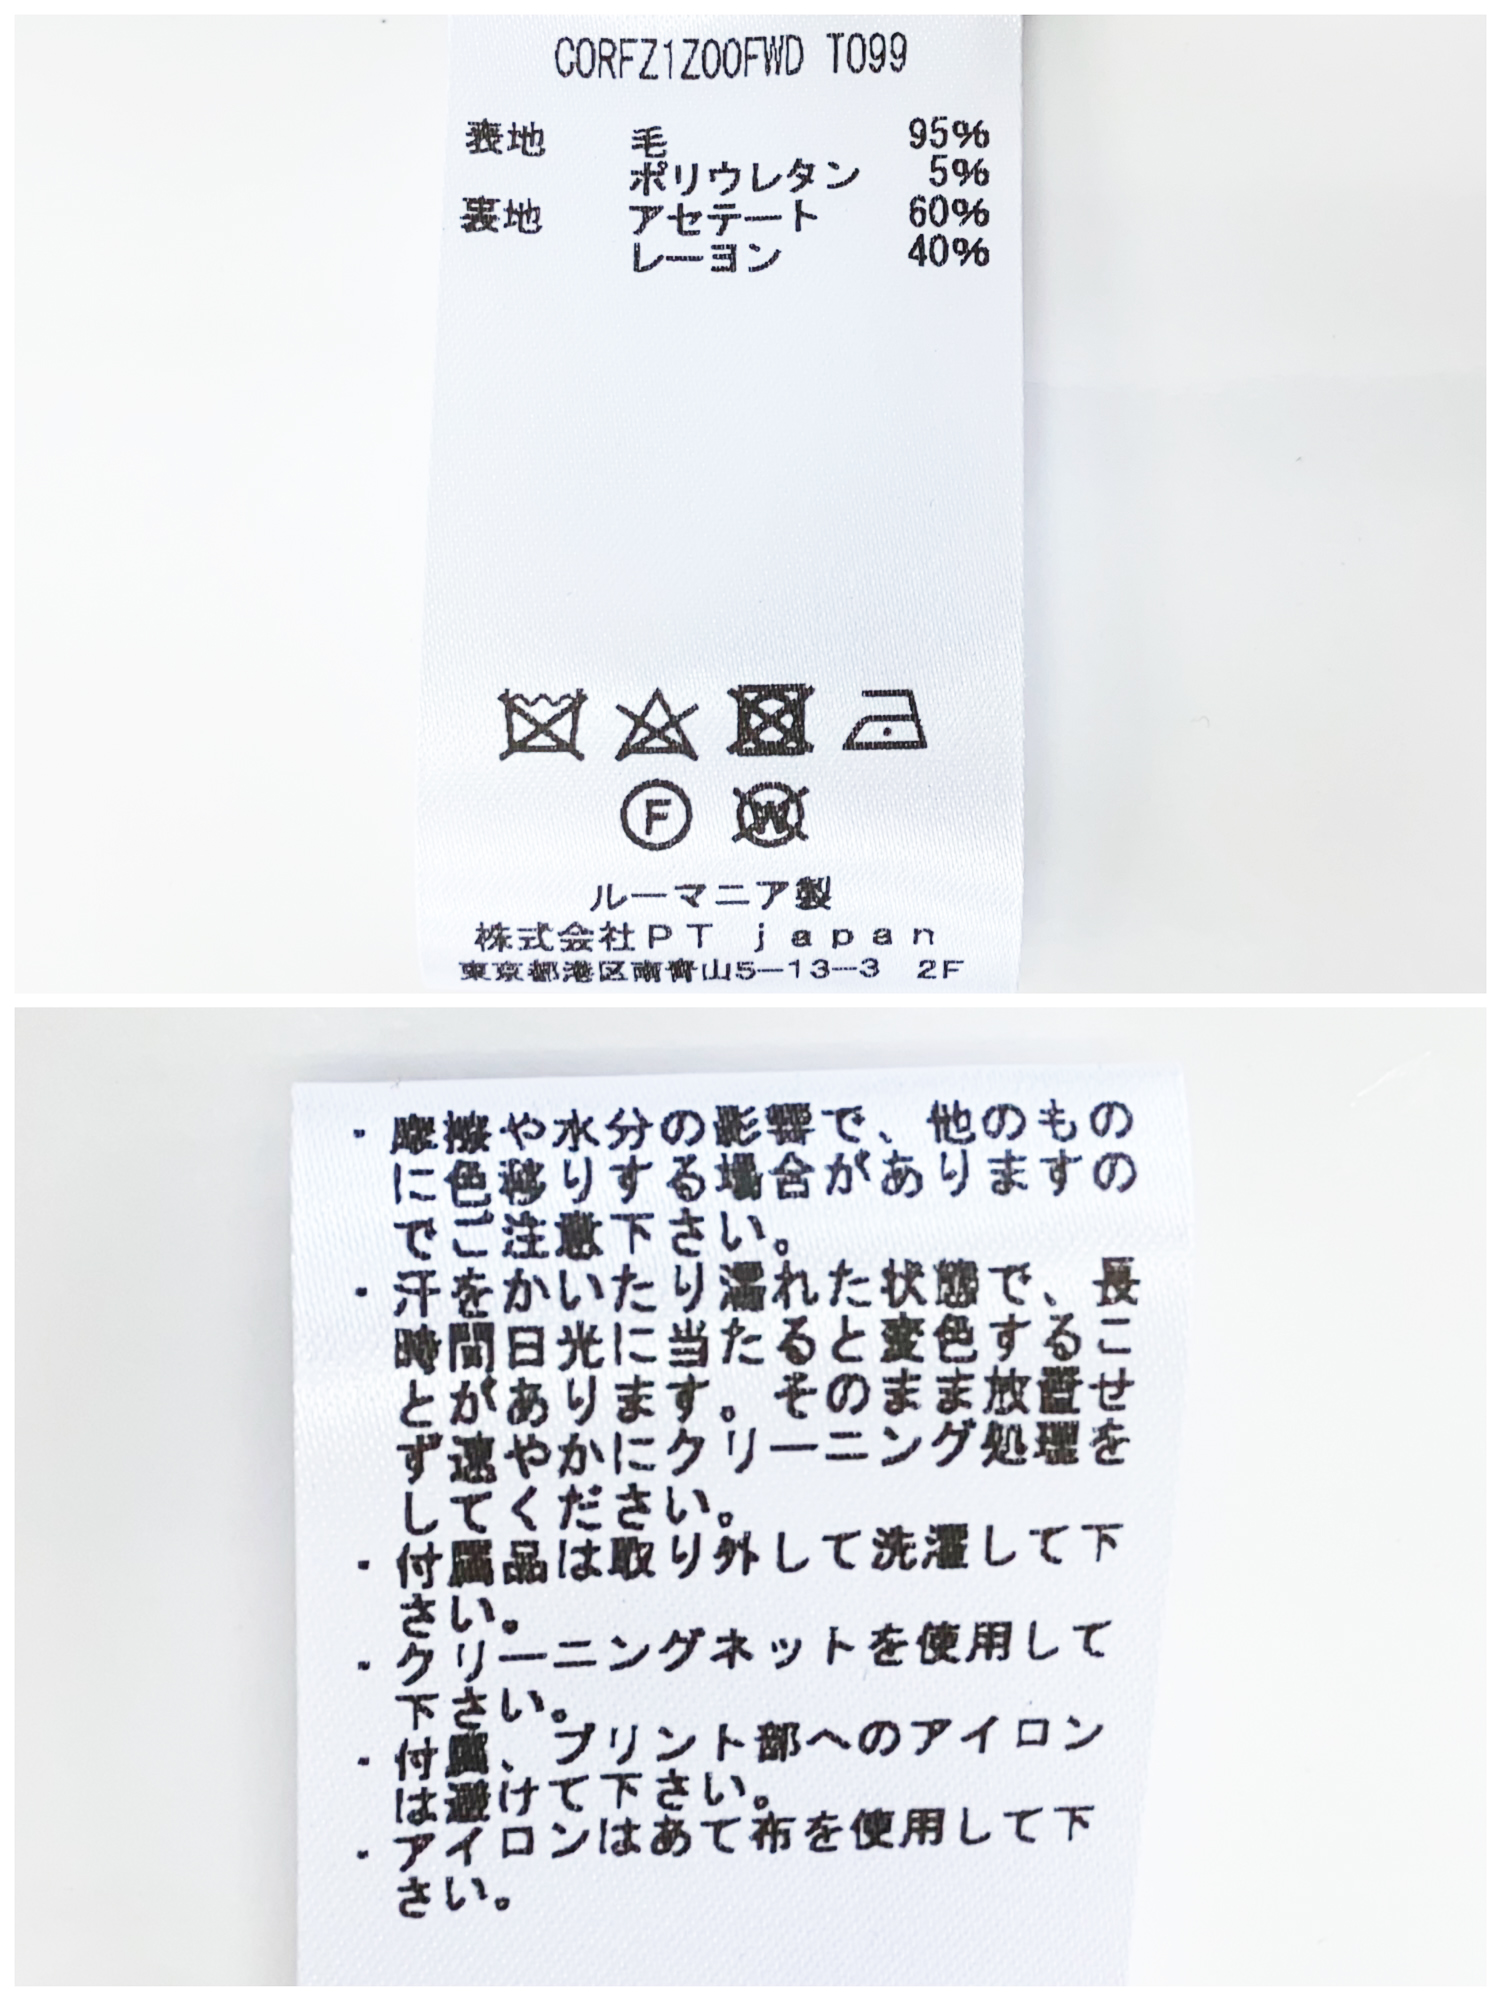 CORFZ1Z00FWD T099
表地 毛 95%
ポリウレタン 5%
裏地 アセテート 60%
レーヨン 40%
F W
ルーマニア製
株式会社PT japan
東京都港区南青山5-13-3 2F
・摩擦や水分の影響で、他のもの
に色移りする場合がありますの
でご注意下さい。
・汗をかいたり濡れた状態で、長
時間日光に当たると変色するこ
とがあります。そのまま放置せ
ず速やかにクリーニング処理を
してください。
・付属品は取り外して洗濯して下
さい。
・クリーニングネットを使用して
下さい。
・付属、プリント部へのアイロン
は避けて下さい。
・アイロンはあて布を使用して下
さい。